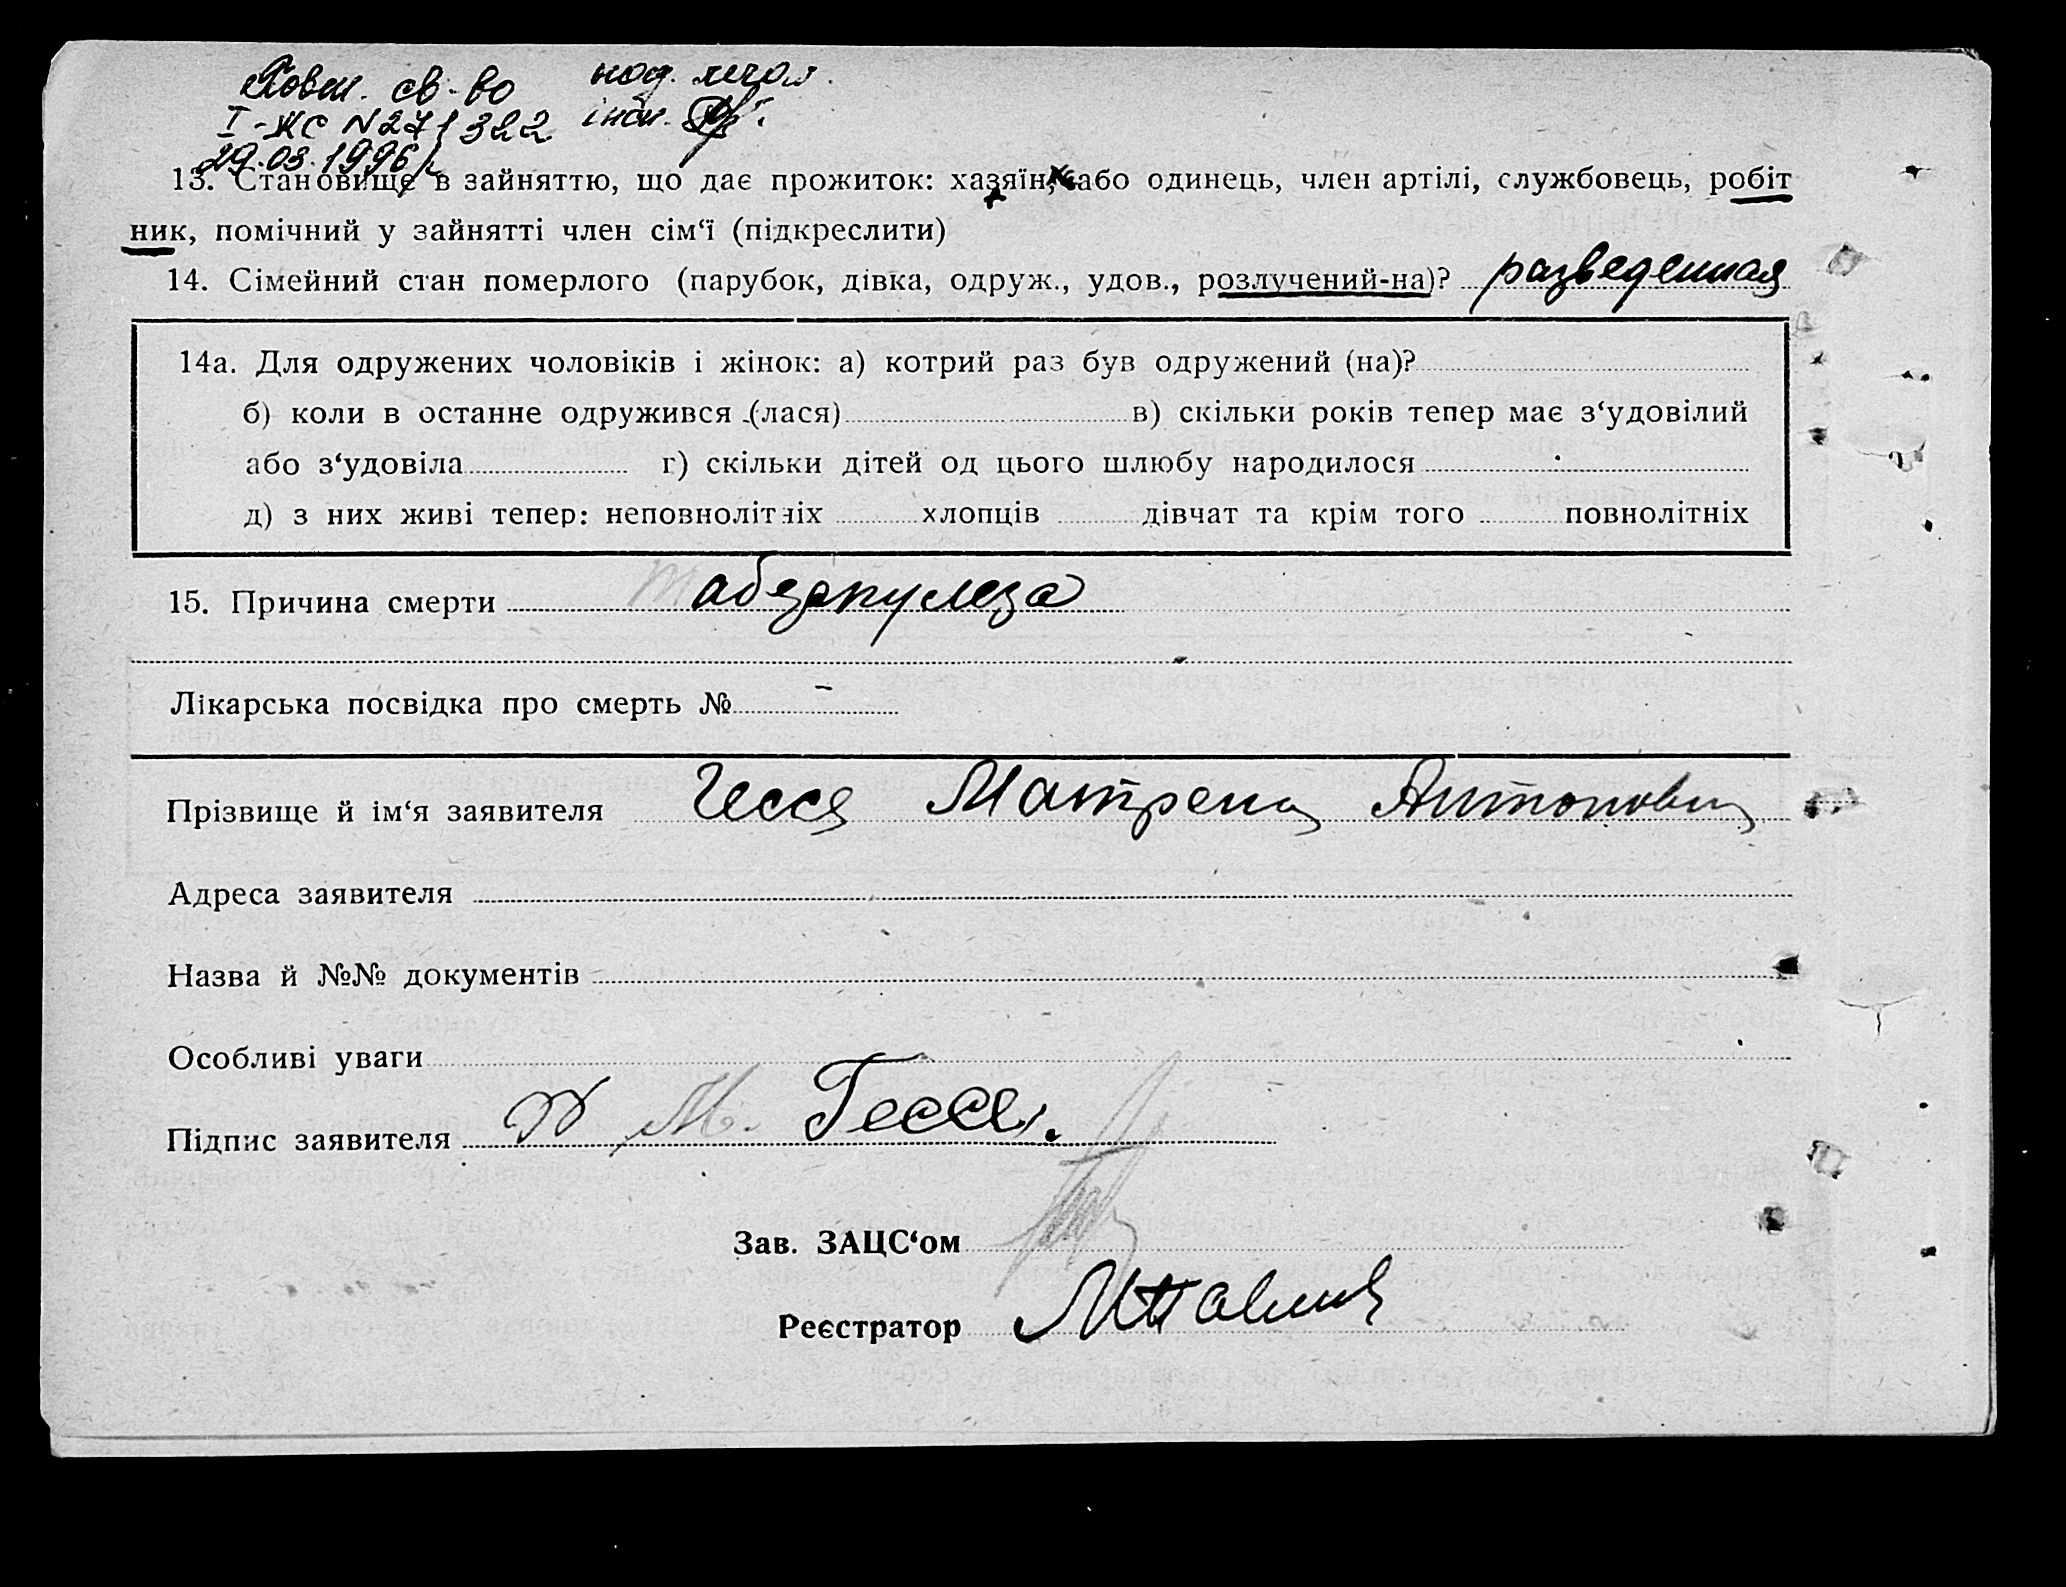 Повт. св-во
I-ЖС N 271322
29.03.1996
13. Становище в зайняттю, що дає прожиток: хазяїн, або одинець, член артілі, службовець, робіт
ник, помічний у зайнятті член сім‘ї (підкреслити)
14. Сімейний стан померлого (парубок, дівка, одруж., удов., розлучений-на)? разведенная
14а. Для одружених чоловіків і жінок: а) котрий раз був одружений (на)?
б) коли в останне одружився (лася) в) скільки років тепер має з‘удовілий
або з‘удовіла г) скільки дітей од цього шлюбу народилося
д) з них живі тепер: неповнолітніх хлопців дівчат та крім того повнолітніх
15. Причина смерти
Лікарська посвідка про смерть № –
Прізвище й ім‘я заявителя Гессе Матрена Антоновна
Адреса заявителя
Назва й №№ документів
Особливі уваги
Підпис заявителя М. Гессе.
Зав. ЗАЦС‘ом
Реєстратор